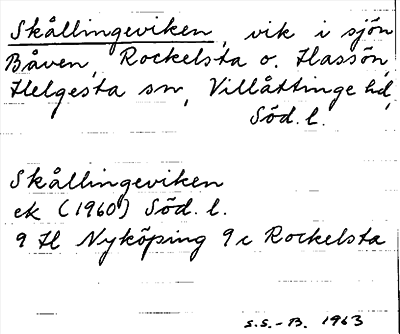 Skållingeviken, vik i sjön
Båven, Rockelsta o. Hassön,
Helgesta sn, Villåttinge hd,
Söd. l.
Skållingeviken
ek (1960) Söd. l.
9 H Nyköping 9 c Rockelsta
S.S.-B. 1963